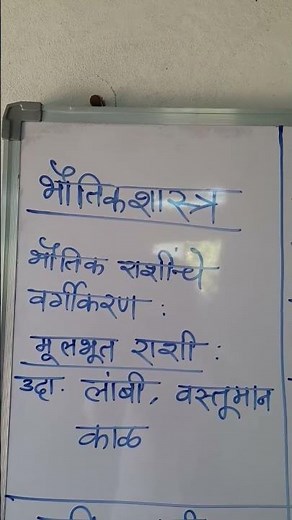 भौतिकशास्त्र
भौतिक राशींचे
वर्गीकरण :
मूलभूत राशी :
उदा. लांबी, वस्तूमान
काळ